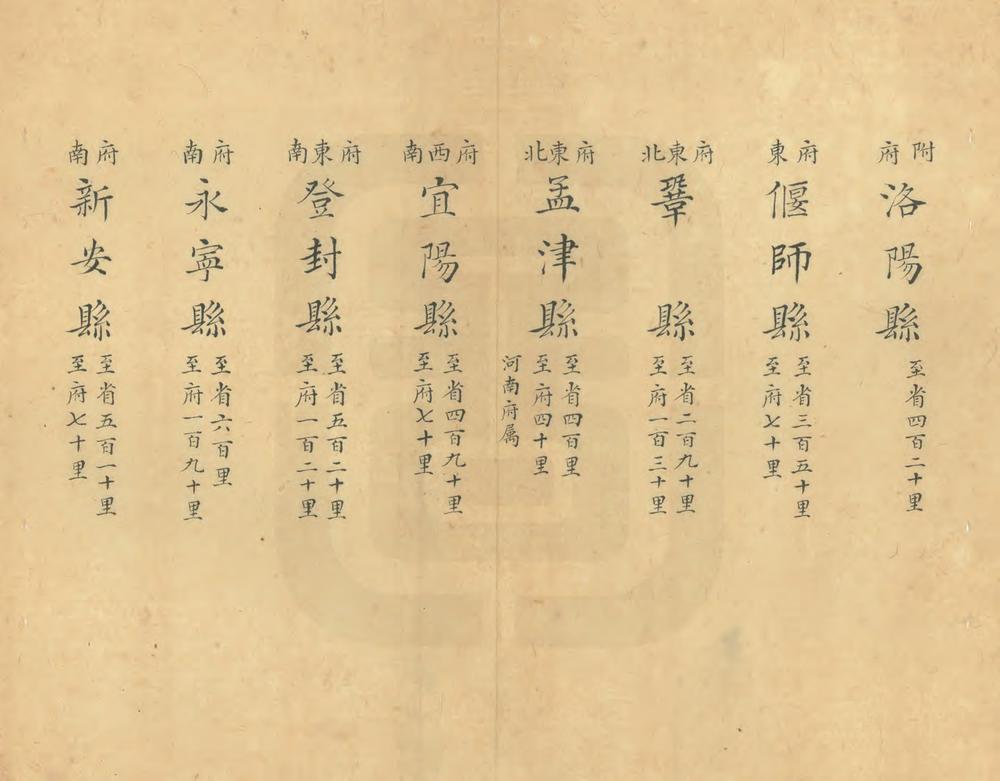 附府
洛陽縣
至省四百二十里
府東
偃師縣
至省三百五十里
至府七十里
府東北
鞏縣
至省二百九十里
至府一百三十里
府東北
孟津縣
至省四百里
至府四十里
河南府属
府西南
宜陽縣
至省四百九十里
至府七十里
府東南
登封縣
至省五百二十里
至府一百二十里
府南
永寧縣
至省六百里
至府一百九十里
府南
新安縣
至省五百一十里
至府七十里